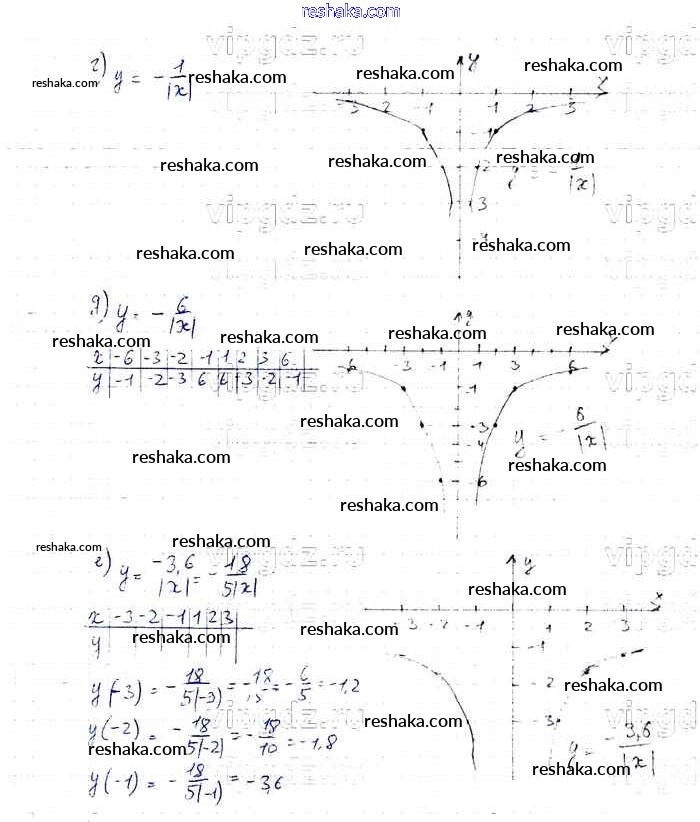 reshaka.com
vipgdz.ru
г) y = -1/|x|
reshaka.com reshaka.com reshaka.com reshaka.com
y x
-3 -2 -1 1 2 3
-1
-2
3
reshaka.com reshaka.com
y = -1/|x|
vipgdz.ru vipgdz.ru
reshaka.com reshaka.com reshaka.com
g) y = -6/|x|
reshaka.com reshaka.com reshaka.com reshaka.com
x -6 -3 -2 -1 1 2 3 6
y -1 -2 -3 6 6 -3 -2 -1
-6 -3 -1 1 3 6
-1
-3
-4
-6
y = -6/|x|
reshaka.com reshaka.com reshaka.com reshaka.com
reshaka.com reshaka.com
vipgdz.ru
е) y = -3,6/|x| = -18/5|x|
reshaka.com
x -3 -2 -1 1 2 3
y
reshaka.com reshaka.com
y x
-3 -2 -1 1 2 3
-1
-2
-3
y(-3) = -18/5|-3| = -18/15 = -6/5 = -1,2
reshaka.com
y(-2) = -18/5|-2| = -18/10 = -1,8
reshaka.com reshaka.com
y = -3,6/|x|
y(-1) = -18/5|-1| = -3,6